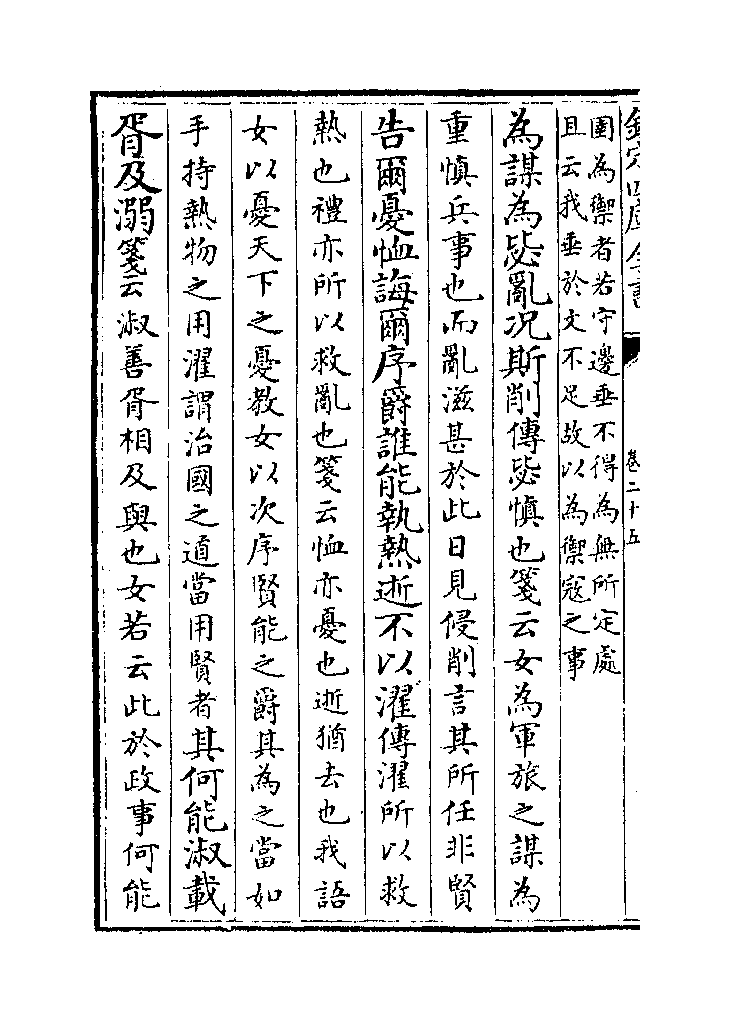 欽定四庫全書
卷二十五
圉為禦者若守邊垂不得為無所定處
且云我垂於文不足故以為禦寇之事
為謀為毖亂况斯削傳毖慎也箋云女為軍旅之謀為
重慎兵事也而亂滋甚於此日見侵削言其所任非賢
告爾憂恤誨爾序爵誰能執熱逝不以濯傳濯所以救
熱也禮亦所以救亂也箋云恤亦憂也逝猶去也我語
女以憂天下之憂教女以次序賢能之爵其為之當如
手持熱物之用濯謂治國之道當用賢者其何能淑載
胥及溺箋云淑善胥相及與也女若云此於政事何能